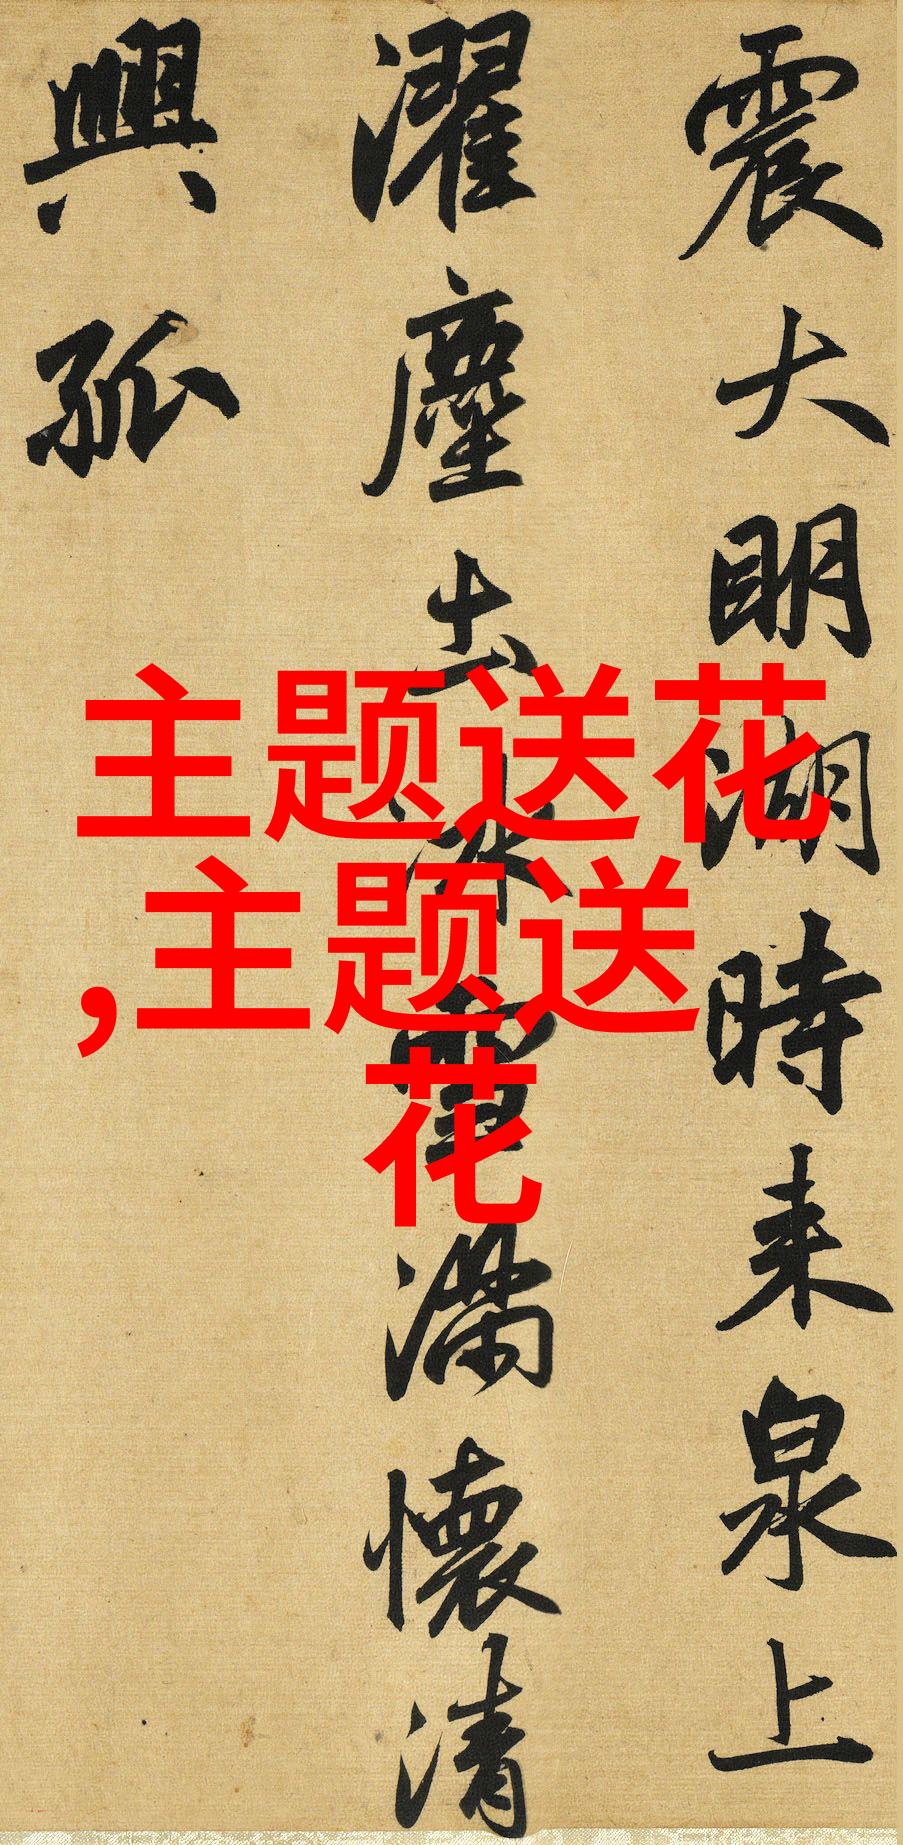 震大明湖時来泉上
濯塵土冰雪滿懷清
興孤
主题送花
,主题送
花